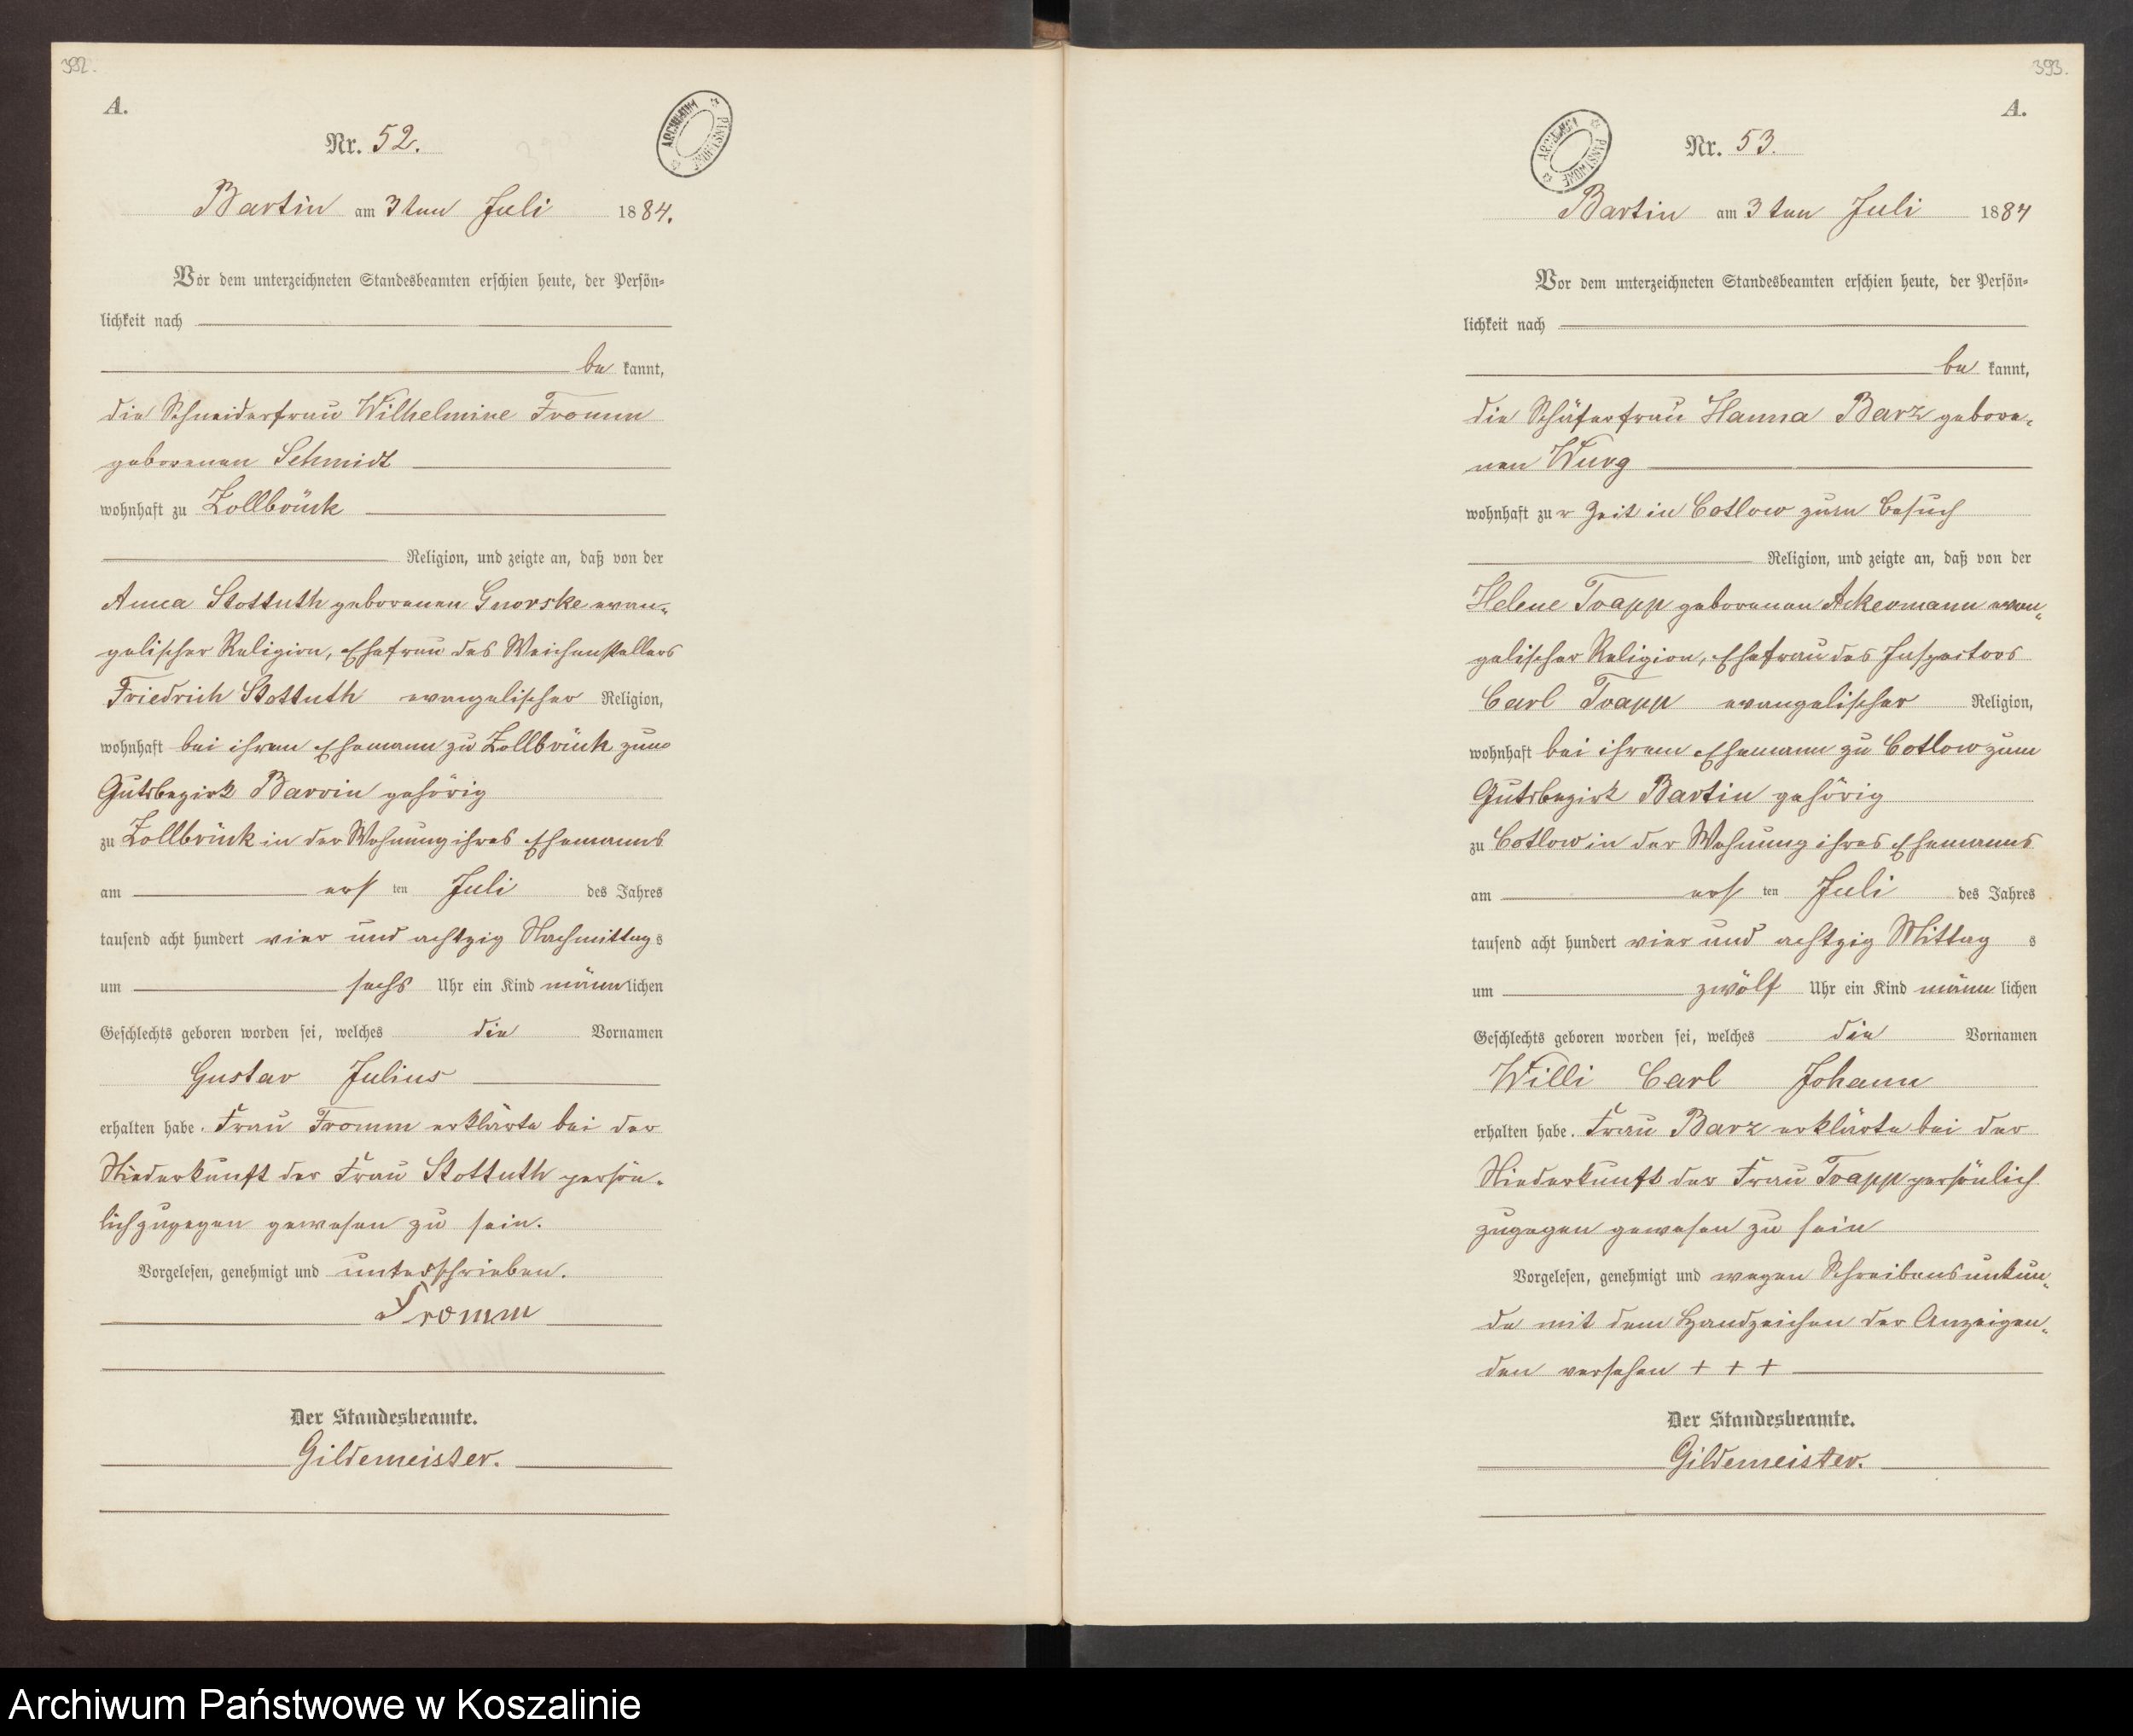 392.
A.
Nr. 52.
Bartin am 3ten Juli 1884.
Vor dem unterzeichneten Standesbeamten erschien heute, der Persön-
lichkeit nach
be kannt,
die Schneiderfrau Wilhelmine Fromm
geborenen Schmidt
wohnhaft zu Zollbrück
Religion, und zeigte an, daß von der
Anna Stottuth geborenen Gnorske evan-
gelischer Religion, Ehefrau des Weichenstellers
Friedrich Stottuth evangelischer Religion,
wohnhaft bei ihrem Ehemann zu Zollbrück zum
Gutsbezirk Barvin gehörig
zu Zollbrück in der Wohnung ihres Ehemanns
am ersten Juli des Jahres
tausend acht hundert vier und achtzig Nachmittags
um sechs Uhr ein Kind männlichen
Geschlechts geboren worden sei, welches die Vornamen
Gustav Julius
erhalten habe. Frau Fromm erklärte bei der
Niederkunft der Frau Stottuth persön-
lich zugegen gewesen zu sein.
Vorgelesen, genehmigt und unterschrieben.
Fromm
Der Standesbeamte.
Gildemeister.
393.
A.
ARCHIWUM PAŃSTWOWE
Nr. 53.
Bartin am 3ten Juli 1884
Vor dem unterzeichneten Standesbeamten erschien heute, der Persön-
lichkeit nach
be kannt,
die Schäferfrau Hanna Barz gebore-
nen Wurg
wohnhaft zur Zeit in Cotlow zum Besuch
Religion, und zeigte an, daß von der
Helene Trapp geborenen Ackermann evan-
gelischer Religion, Ehefrau des Inspectors
Carl Trapp evangelischer Religion,
wohnhaft bei ihrem Ehemann zu Cotlow zum
Gutsbezirk Bartin gehörig
zu Cotlow in der Wohnung ihres Ehemanns
am ersten Juli des Jahres
tausend acht hundert vier und achtzig Mittags
um zwölf Uhr ein Kind männlichen
Geschlechts geboren worden sei, welches die Vornamen
Willi Carl Johann
erhalten habe. Frau Barz erklärte bei der
Niederkunft der Frau Trapp persönlich
zugegen gewesen zu sein
Vorgelesen, genehmigt und wegen Schreibensunkun-
de mit dem Handzeichen der Anzeigen-
den versehen + + +
Der Standesbeamte.
Gildemeister.
Archiwum Państwowe w Koszalinie